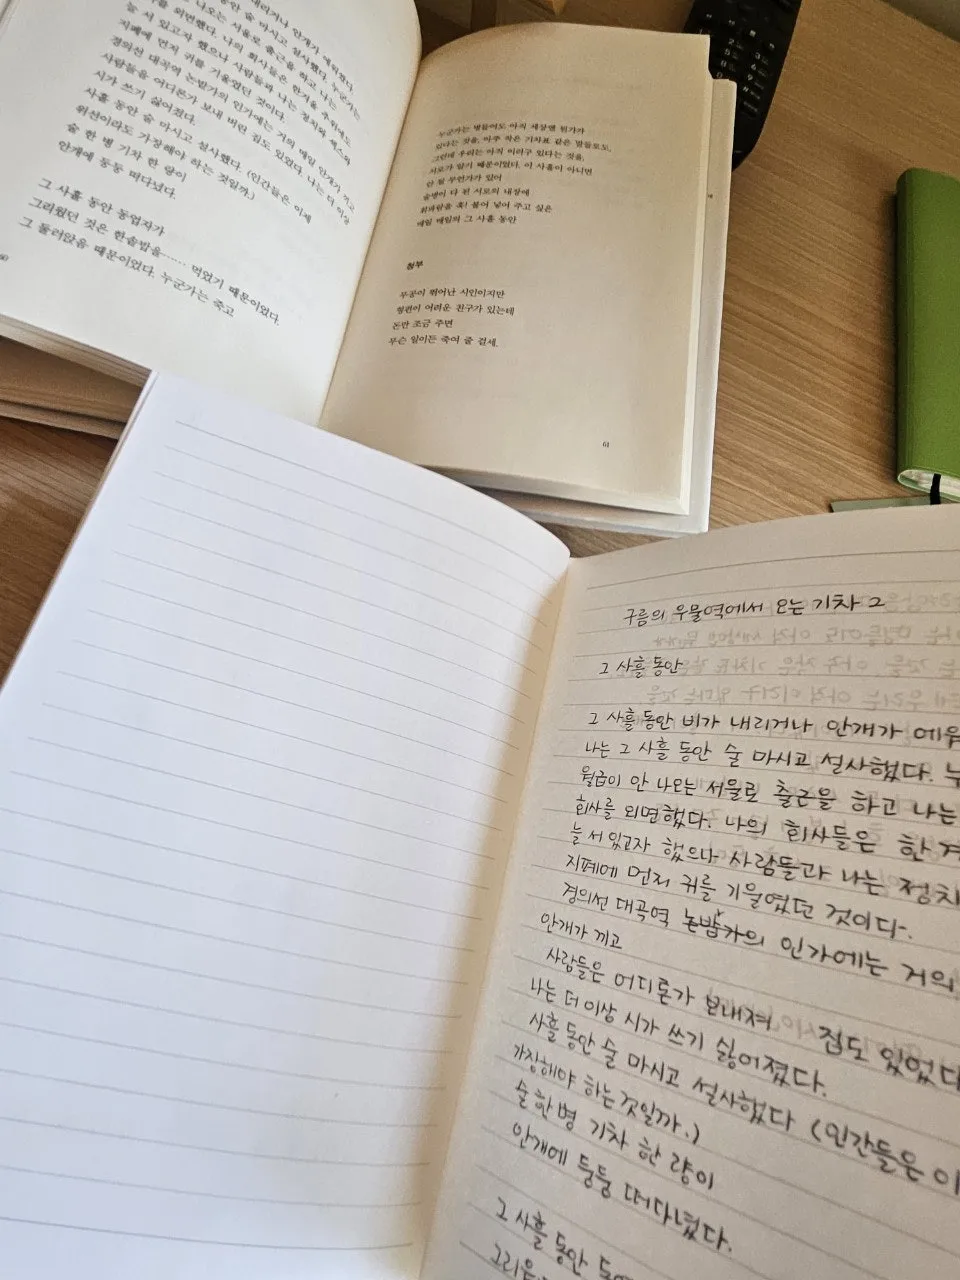 내리거나 안개가 에워쌌다.
동안 술 마시고 설사했다. 누군가는
나오는 서울로 출근을 하고 나는
를 외면했다. 나의 회사들은 한겨울 추위에도
늘 서 있고자 했으나 사람들과 나는 정치와 섹스와
지폐에 먼저 귀를 기울였던 것이다.
경의선 대곡역 논밭가의 인가에는 거의 매일 안개가 끼고
사람들을 어디론가 보내 버린 집도 있었다. 나는 더 이상
시가 쓰기 싫어졌다.
사흘 동안 술 마시고 설사했다. (인간들은 이제
위선이라도 가장해야 하는 것일까.)
술 한 병 기차 한 량이
안개에 둥둥 떠다녔다.
그 사흘 동안 동업자가
그리웠던 것은 한솥밥을…… 먹었기 때문이었다.
그 둘러앉음 때문이었다. 누군가는 죽고
60
누군가는 병들어도 아직 세상엔 뭔가가
있다는 것을, 아주 작은 기차표 같은 말들로도,
그런데 우리는 아직 이러구 있다는 것을,
서로가 알기 때문이었다. 이 사흘이 아니면
안 될 무언가가 있어
술병이 다 된 서로의 내장에
휘파람을 훅! 불어 넣어 주고 싶은
매일 매일의 그 사흘 동안
청부
무공이 뛰어난 시인이지만
형편이 어려운 친구가 있는데
돈만 조금 주면
무슨 일이든 죽여 줄 걸세.
61
구름의 우물역에서 오는 기차 2
그 사흘 동안
그 사흘 동안 비가 내리거나 안개가 에워
나는 그 사흘 동안 술 마시고 설사했다. 누
월급이 안 나오는 서울로 출근을 하고 나는
회사를 외면했다. 나의 회사들은 한겨
늘 서 있고자 했으나 사람들과 나는 정치
지폐에 먼저 귀를 기울였던 것이다.
경의선 대곡역 논밭가의 인가에는 거의
안개가 끼고
사람들은 어디론가 보내져 집도 있었다
나는 더 이상 시가 쓰기 싫어졌다.
사흘 동안 술 마시고 설사했다 (인간들은 이
가장해야 하는 것일까.)
술 한 병 기차 한 량이
안개에 둥둥 떠다녔다.
그 사흘 동안